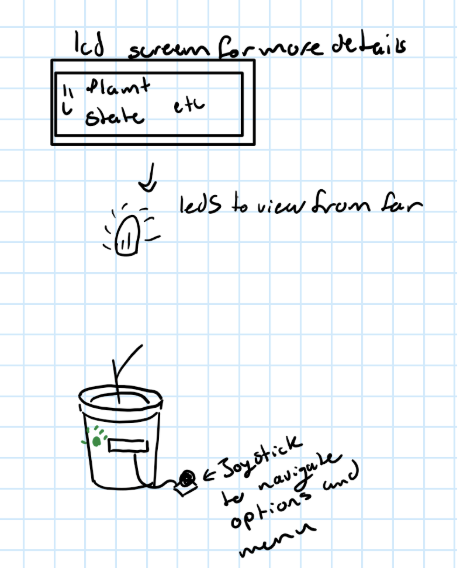 lcd screen for more details
Plant
state etc
leds to view from far
Joystick
to navigate
options and
menu